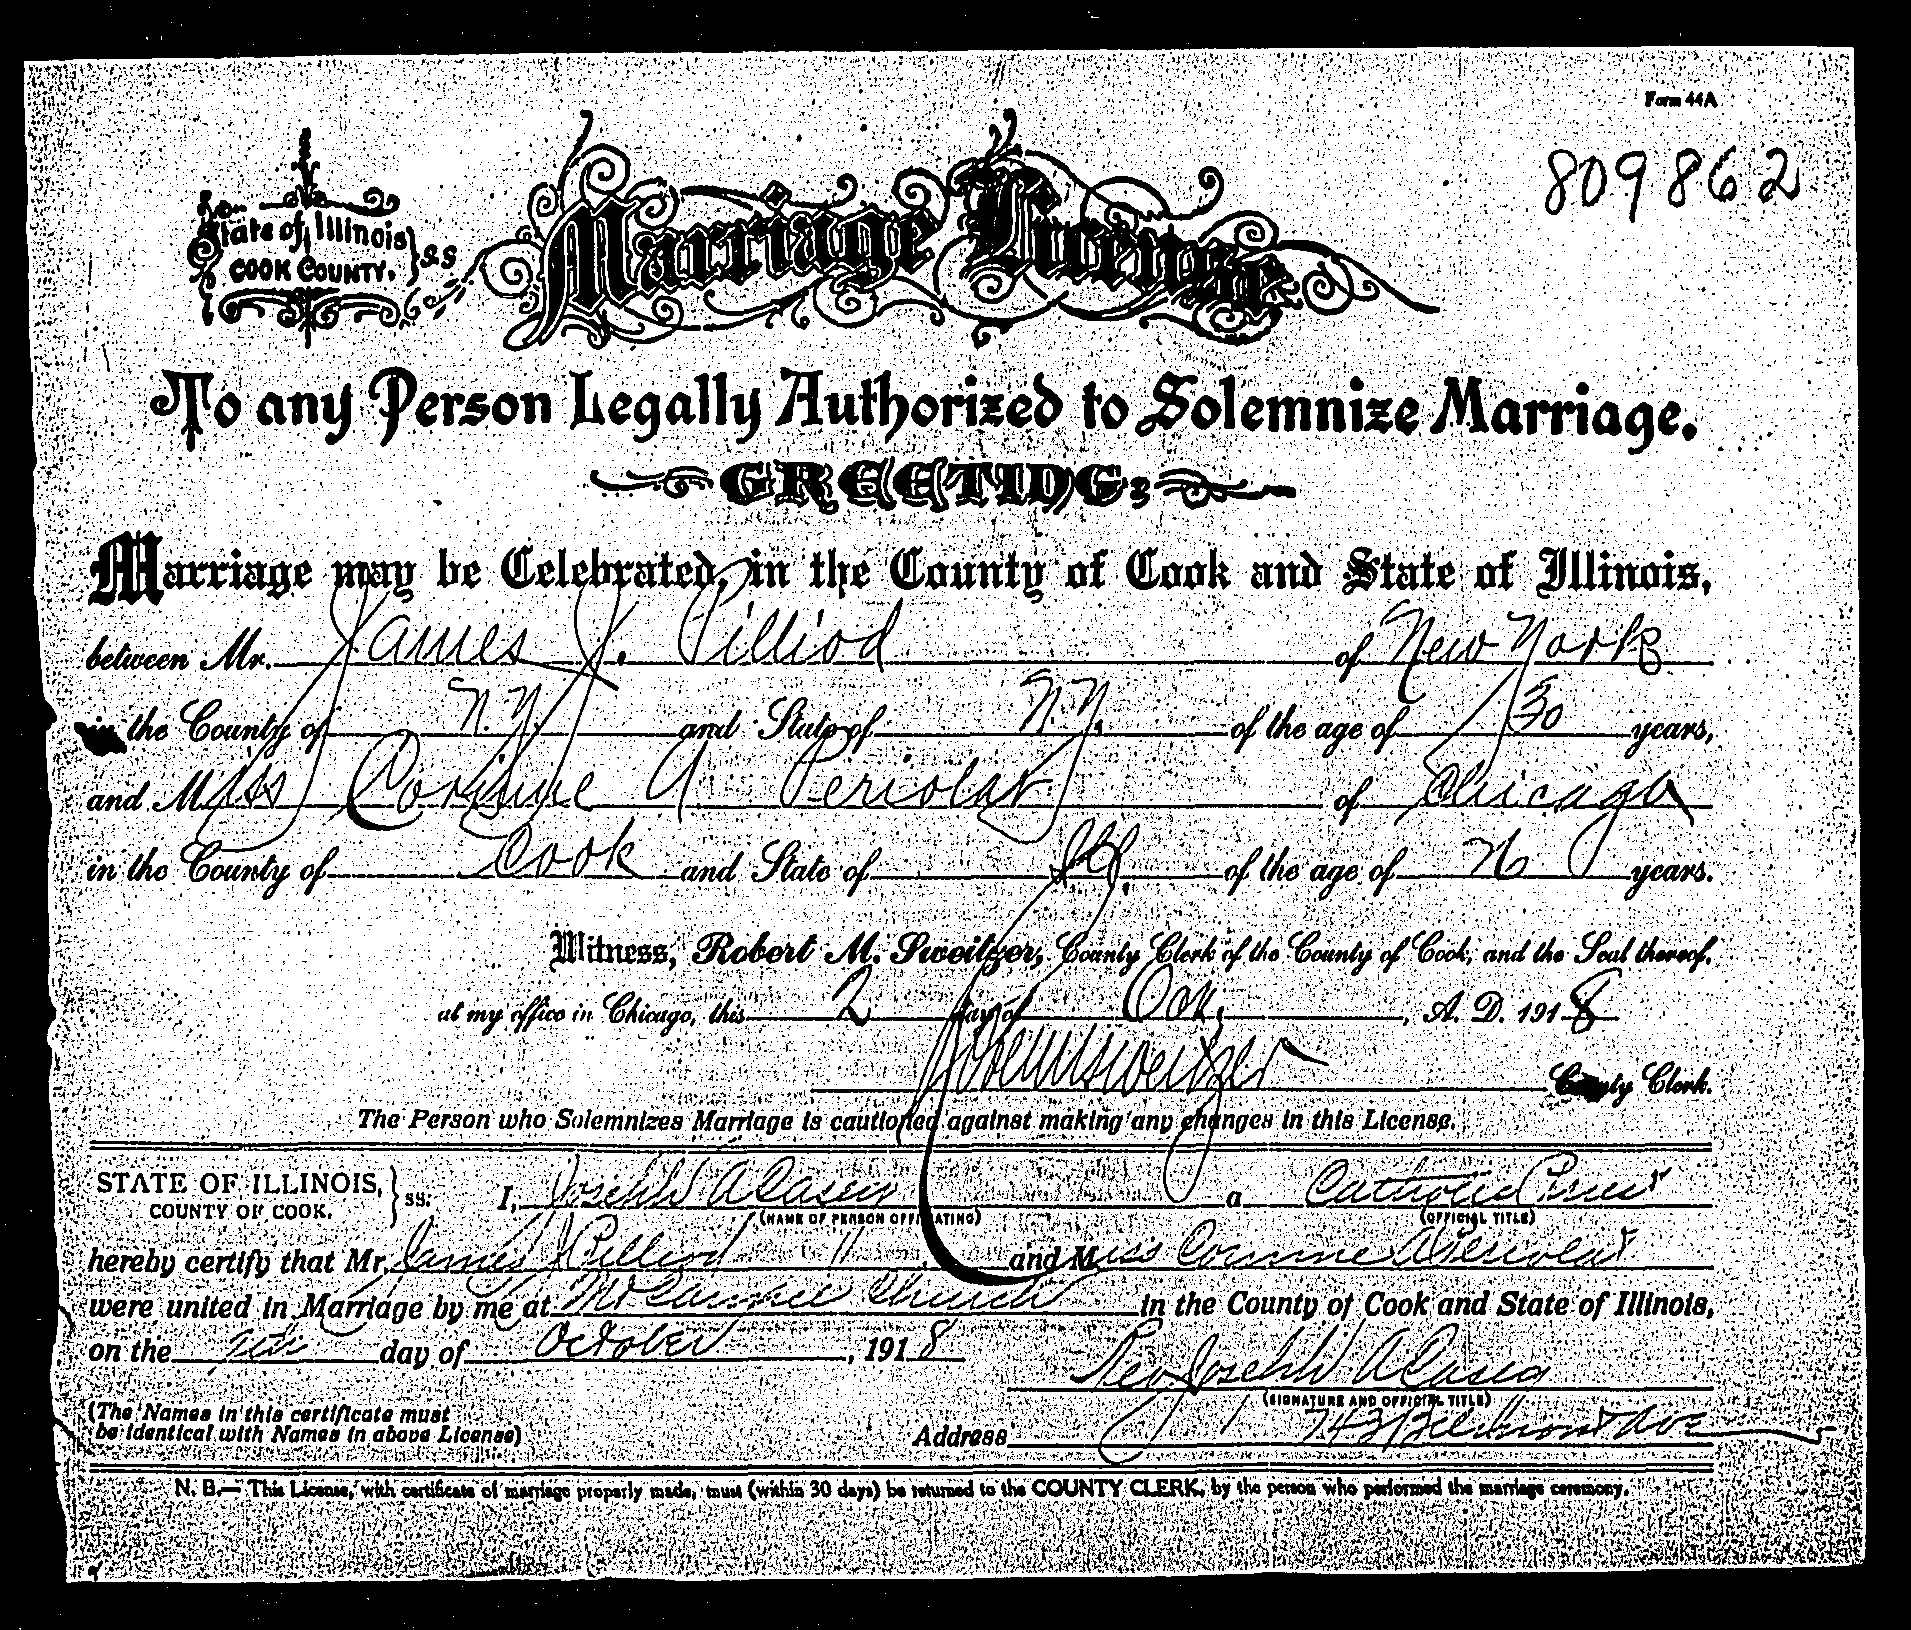 Form 44A
809862
State of Illinois } SS
COOK COUNTY.
Marriage License
To any Person Legally Authorized to Solemnize Marriage.
GREETING:
Marriage may be Celebrated, in the County of Cook and State of Illinois,
between Mr. James J. Pilliod of New York
in the County of N.Y. and State of N.Y. of the age of 30 years,
and Miss Corinne A. Periolat of Chicago
in the County of Cook and State of Ill. of the age of years.
Witness, Robert M. Sweitzer, County Clerk of the County of Cook, and the Seal thereof,
at my office in Chicago, this 2 day of Oct, A. D. 1918
Robert M Sweitzer County Clerk.
The Person who Solemnizes Marriage is cautioned against making any changes in this License.
STATE OF ILLINOIS, } ss. I, Joseph W A Casey a Catholic Priest
COUNTY OF COOK. (NAME OF PERSON OFFICIATING) (OFFICIAL TITLE)
hereby certify that Mr. James J Pilliod and Miss Corinne A Periolat
were united in Marriage by me at Mt Carmel Church in the County of Cook and State of Illinois,
on the day of October, 1918 Rev Joseph W A Casey
(SIGNATURE AND OFFICIAL TITLE)
(The Names in this certificate must
be identical with Names in above License) Address 743 Belmont Ave
N. B.— This License, with certificate of marriage properly made, must (within 30 days) be returned to the COUNTY CLERK, by the person who performed the marriage ceremony.